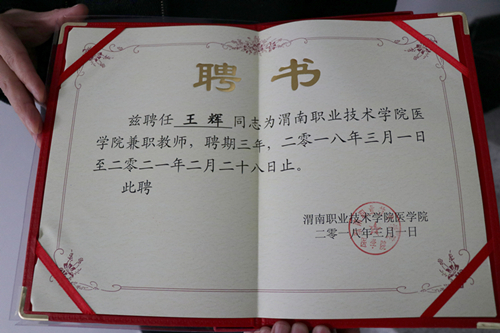 聘书
兹聘任 王辉 同志为渭南职业技术学院医
学院兼职教师，聘期三年，二零一八年三月一日
至二零二一年二月二十八日止。
此聘
渭南职业技术学院医学院
二零一八年三月一日
医学院